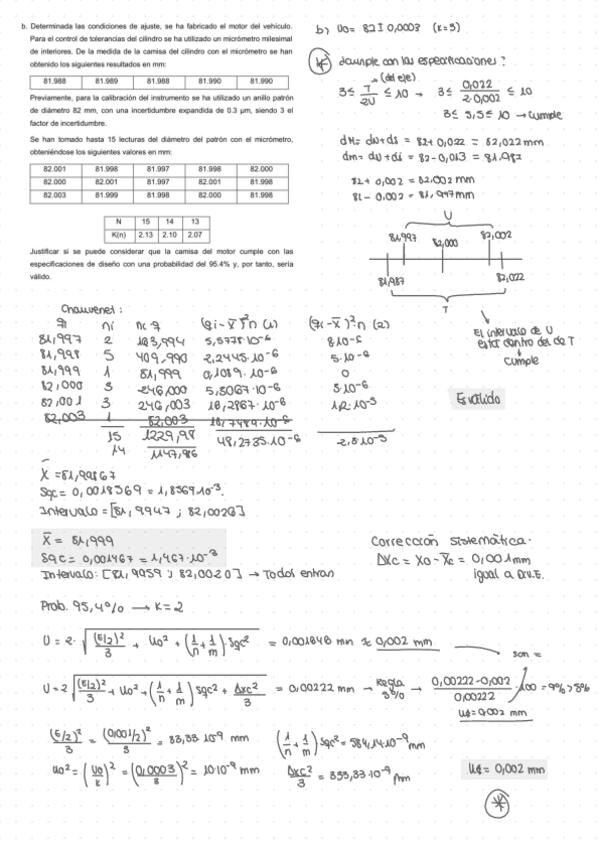 b. Determinada las condiciones de ajuste, se ha fabricado el motor del vehículo.
Para el control de tolerancias del cilindro se ha utilizado un micrómetro milesimal
de interiores. De la medida de la camisa del cilindro con el micrómetro se han
obtenido los siguientes resultados en mm:
81.988 81.989 81.988 81.990 81.990
Previamente, para la calibración del instrumento se ha utilizado un anillo patrón
de diámetro 82 mm, con una incertidumbre expandida de 0.3 µm, siendo 3 el
factor de incertidumbre.
Se han tomado hasta 15 lecturas del diámetro del patrón con el micrómetro,
obteniéndose los siguientes valores en mm:
82.001 81.998 81.997 81.998 82.000
82.000 82.001 81.997 82.001 81.998
82.003 81.999 81.998 82.000 81.998
N 15 14 13
K(n) 2.13 2.10 2.07
Justificar si se puede considerar que la camisa del motor cumple con las
especificaciones de diseño con una probabilidad del 95.4% y, por tanto, sería
válido.
b) U0 = 82 ± 0,0003 (K=3)
¿cumple con las especificaciones?
(del eje)
3 ≤ T/2U ≤ 10 → 3 ≤ 0,022/2·0,002 ≤ 10
3 ≤ 5,5 ≤ 10 → Cumple
dM = dN + ds = 82 + 0,022 = 82,022 mm
dm = dN + di = 82 - 0,013 = 81,987
82 + 0,002 = 82.002 mm
82 - 0.002 = 81,997 mm
U
81,997 82,000 82,002
81,987 82,022
T
El intervalo de U
está dentro del de T
→ cumple
Es válido
Chauvenet:
qi ni ni·qi (qi-x̄)²n (1) (qi-x̄)²n (2)
81,997 2 163,994 5,5778·10⁻⁶ 8·10⁻⁶
81,998 5 409,990 2,2445·10⁻⁶ 5·10⁻⁶
81,999 1 81,999 0,1089·10⁻⁶ 0
82,000 3 246,000 5,3067·10⁻⁶ 3·10⁻⁶
82,001 3 246,003 16,2867·10⁻⁶ 1,2·10⁻⁵
82,003 1 82,003 18,7489·10⁻⁶
15 1229,98 48,2735·10⁻⁶ 2,8·10⁻⁵
14 1147,986
x̄ = 81,99867
Sqc = 0,0018569 = 1,8569·10⁻³
Intervalo = [81,9947 ; 82,0026]
x̄ = 81,999
Sqc = 0,001467 = 1,467·10⁻³
Intervalo: [81,9959 ; 82,0020] → Todos entran
Corrección sistemática.
Δxc = x0 - x̄c = 0,001 mm
igual a D.V.E.
Prob. 95,4% → K=2
U = 2·√((E/2)²/3 + U0² + (1/n + 1/m)·Sqc²) = 0,001848 mm ≈ 0,002 mm
son =
U = 2√((E/2)²/3 + U0² + (1/n + 1/m) Sqc² + Δxc²/3) = 0,00222 mm → Regla 3% → (0,00222-0,002)/0,00222 · 100 = 9% > 3%
= 0.002 mm
(E/2)²/3 = (0,001/2)²/3 = 83,33·10⁻⁹ mm
(1/n + 1/m) Sqc² = 584,14·10⁻⁹ mm
U0² = (U0/K)² = (0,0003/3)² = 10·10⁻⁹ mm
Δxc²/3 = 333,33·10⁻⁹ mm
= 0,002 mm